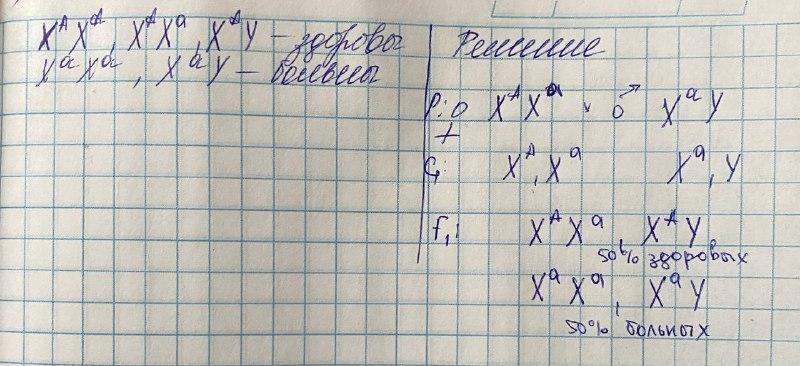 XᴬXᴬ, XᴬXᵃ, XᴬY – здоровы
XᵃXᵃ, XᵃY – больны
Решение
P: ♀ XᴬXᵃ × ♂ XᵃY
G: Xᴬ, Xᵃ Xᵃ, Y
F₁: XᴬXᵃ, XᴬY
50% здоровых
XᵃXᵃ, XᵃY
50% больных